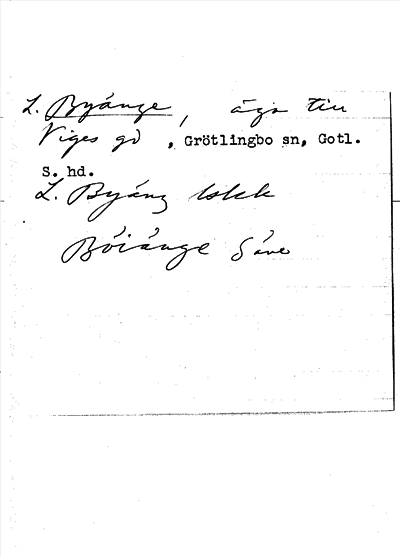 L. Byänge, äga till
Viges gd, Grötlingbo sn, Gotl.
S. hd.
L. Byäng
Böiänge Säve